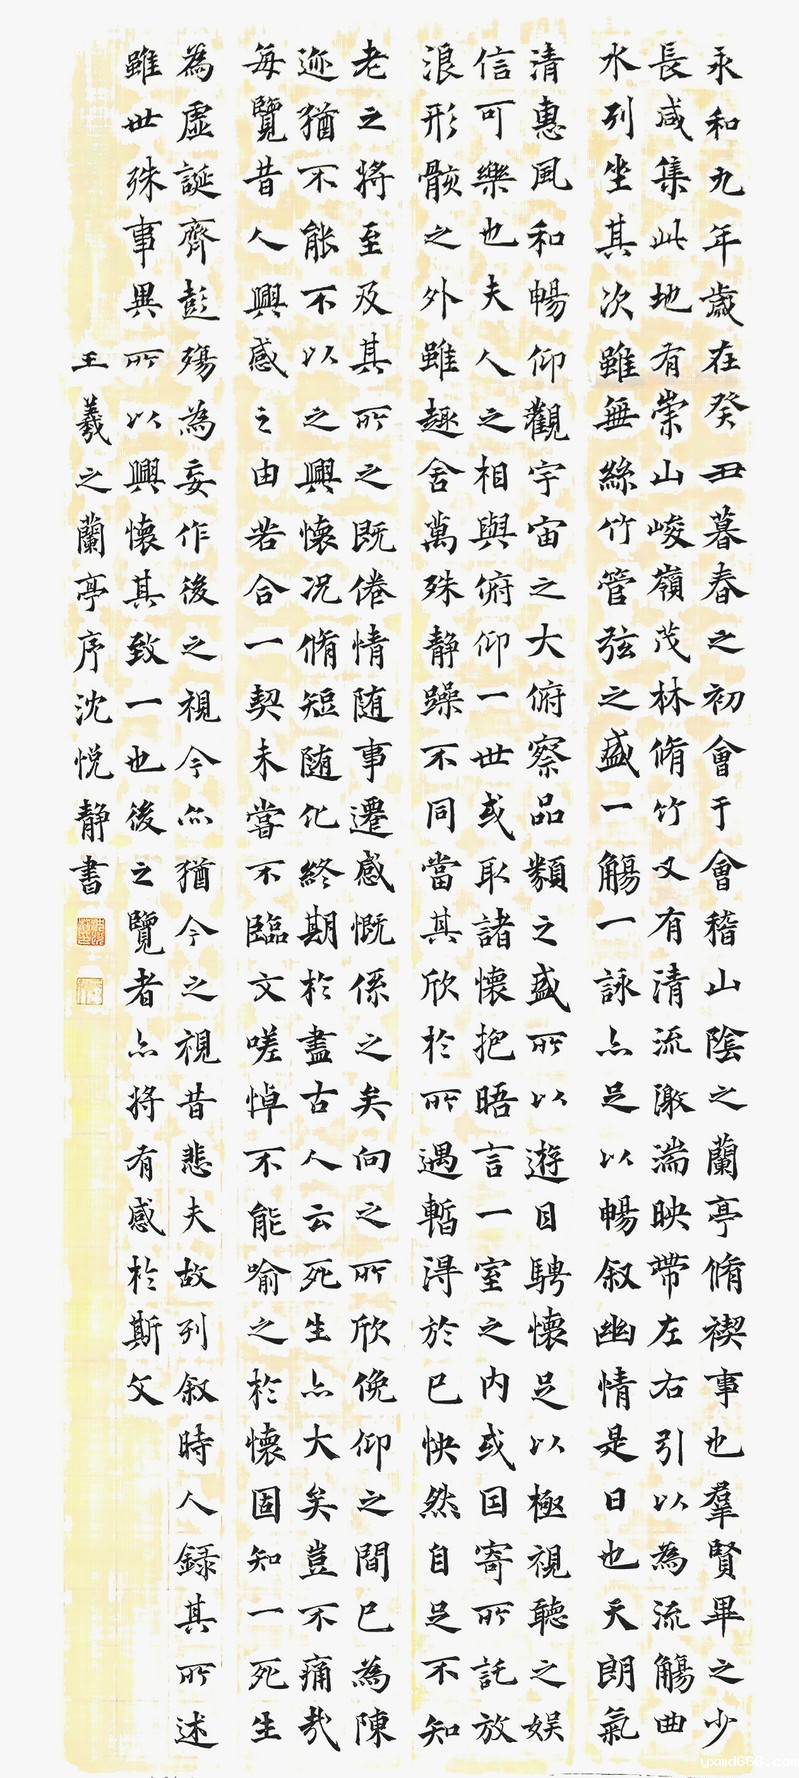 永和九年歲在癸丑暮春之初會于會稽山陰之蘭亭脩禊事也羣賢畢之少
長咸集此地有崇山峻嶺茂林脩竹又有清流激湍映帶左右引以為流觴曲
水列坐其次雖無絲竹管弦之盛一觴一詠亦足以暢叙幽情是日也天朗氣
清惠風和暢仰觀宇宙之大俯察品類之盛所以遊目騁懷足以極視聽之娛
信可樂也夫人之相與俯仰一世或取諸懷抱晤言一室之內或因寄所託放
浪形骸之外雖趣舍萬殊静躁不同當其欣於所遇暫得於己怏然自足不知
老之將至及其所之既倦情随事遷感慨係之矣向之所欣俛仰之間已為陳
迹猶不能不以之興懷况脩短随化終期於盡古人云死生亦大矣豈不痛哉
每覽昔人興感之由若合一契未嘗不臨文嗟悼不能喻之於懷固知一死生
為虛誕齊彭殤為妄作後之視今亦猶今之視昔悲夫故列叙時人録其所述
雖世殊事異所以興懷其致一也後之覽者亦將有感於斯文
王羲之蘭亭序沈悅静書